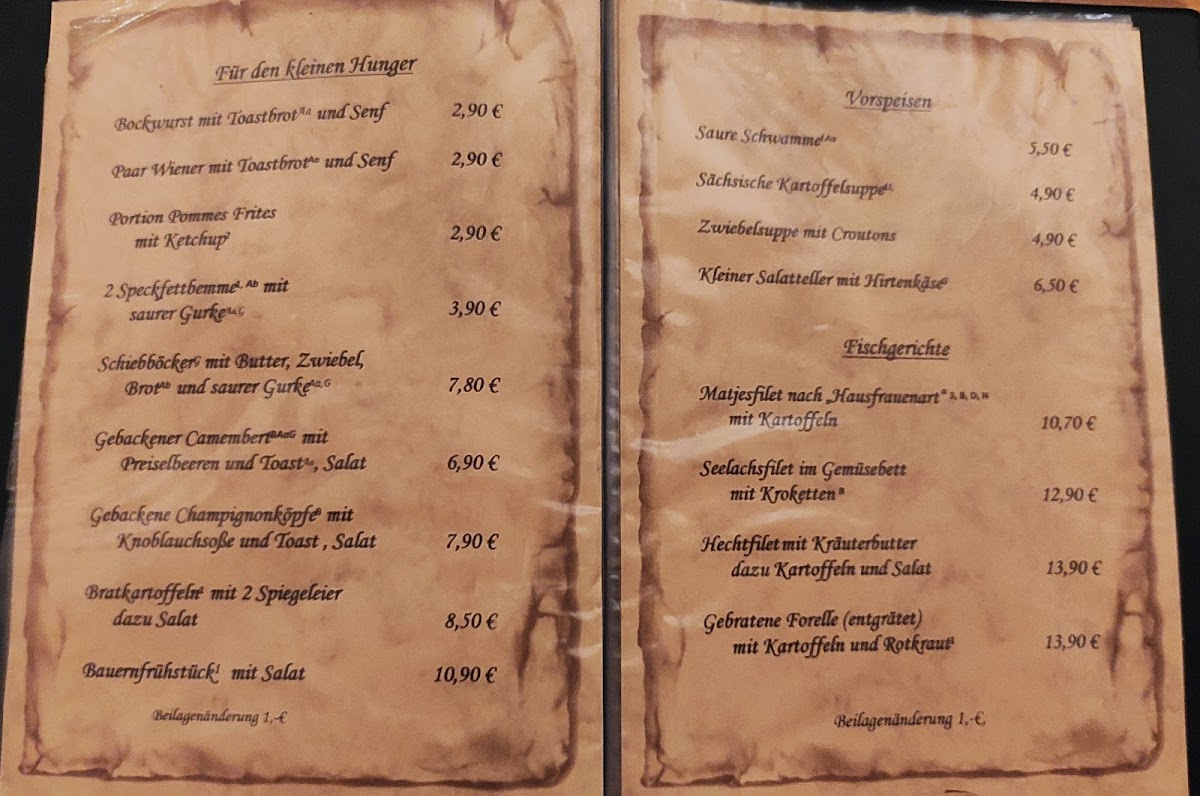 Für den kleinen Hunger
Bockwurst mit Toastbrot und Senf 2,90 €
Paar Wiener mit Toastbrot und Senf 2,90 €
Portion Pommes Frites
mit Ketchup² 2,90 €
2 Speckfettbemme¹, ᴬᵇ mit
saurer Gurke 3,90 €
Schiebböcker ᴳ mit Butter, Zwiebel,
Brot ᴬᵇ und saurer Gurke ᴬᵃ, ᴳ 7,80 €
Gebackener Camembert mit
Preiselbeeren und Toast, Salat 6,90 €
Gebackene Champignonköpfe mit
Knoblauchsoße und Toast , Salat 7,90 €
Bratkartoffeln mit 2 Spiegeleier
dazu Salat 8,50 €
Bauernfrühstück¹ mit Salat 10,90 €
Beilagenänderung 1,-€
Vorspeisen
Saure Schwamme 5,50 €
Sächsische Kartoffelsuppe 4,90 €
Zwiebelsuppe mit Croutons 4,90 €
Kleiner Salatteller mit Hirtenkäse ᴳ 6,50 €
Fischgerichte
Matjesfilet nach „Hausfrauenart“
mit Kartoffeln 10,70 €
Seelachsfilet im Gemüsebett
mit Kroketten ᴮ 12,90 €
Hechtfilet mit Kräuterbutter
dazu Kartoffeln und Salat 13,90 €
Gebratene Forelle (entgrätet)
mit Kartoffeln und Rotkraut 13,90 €
Beilagenänderung 1,-€